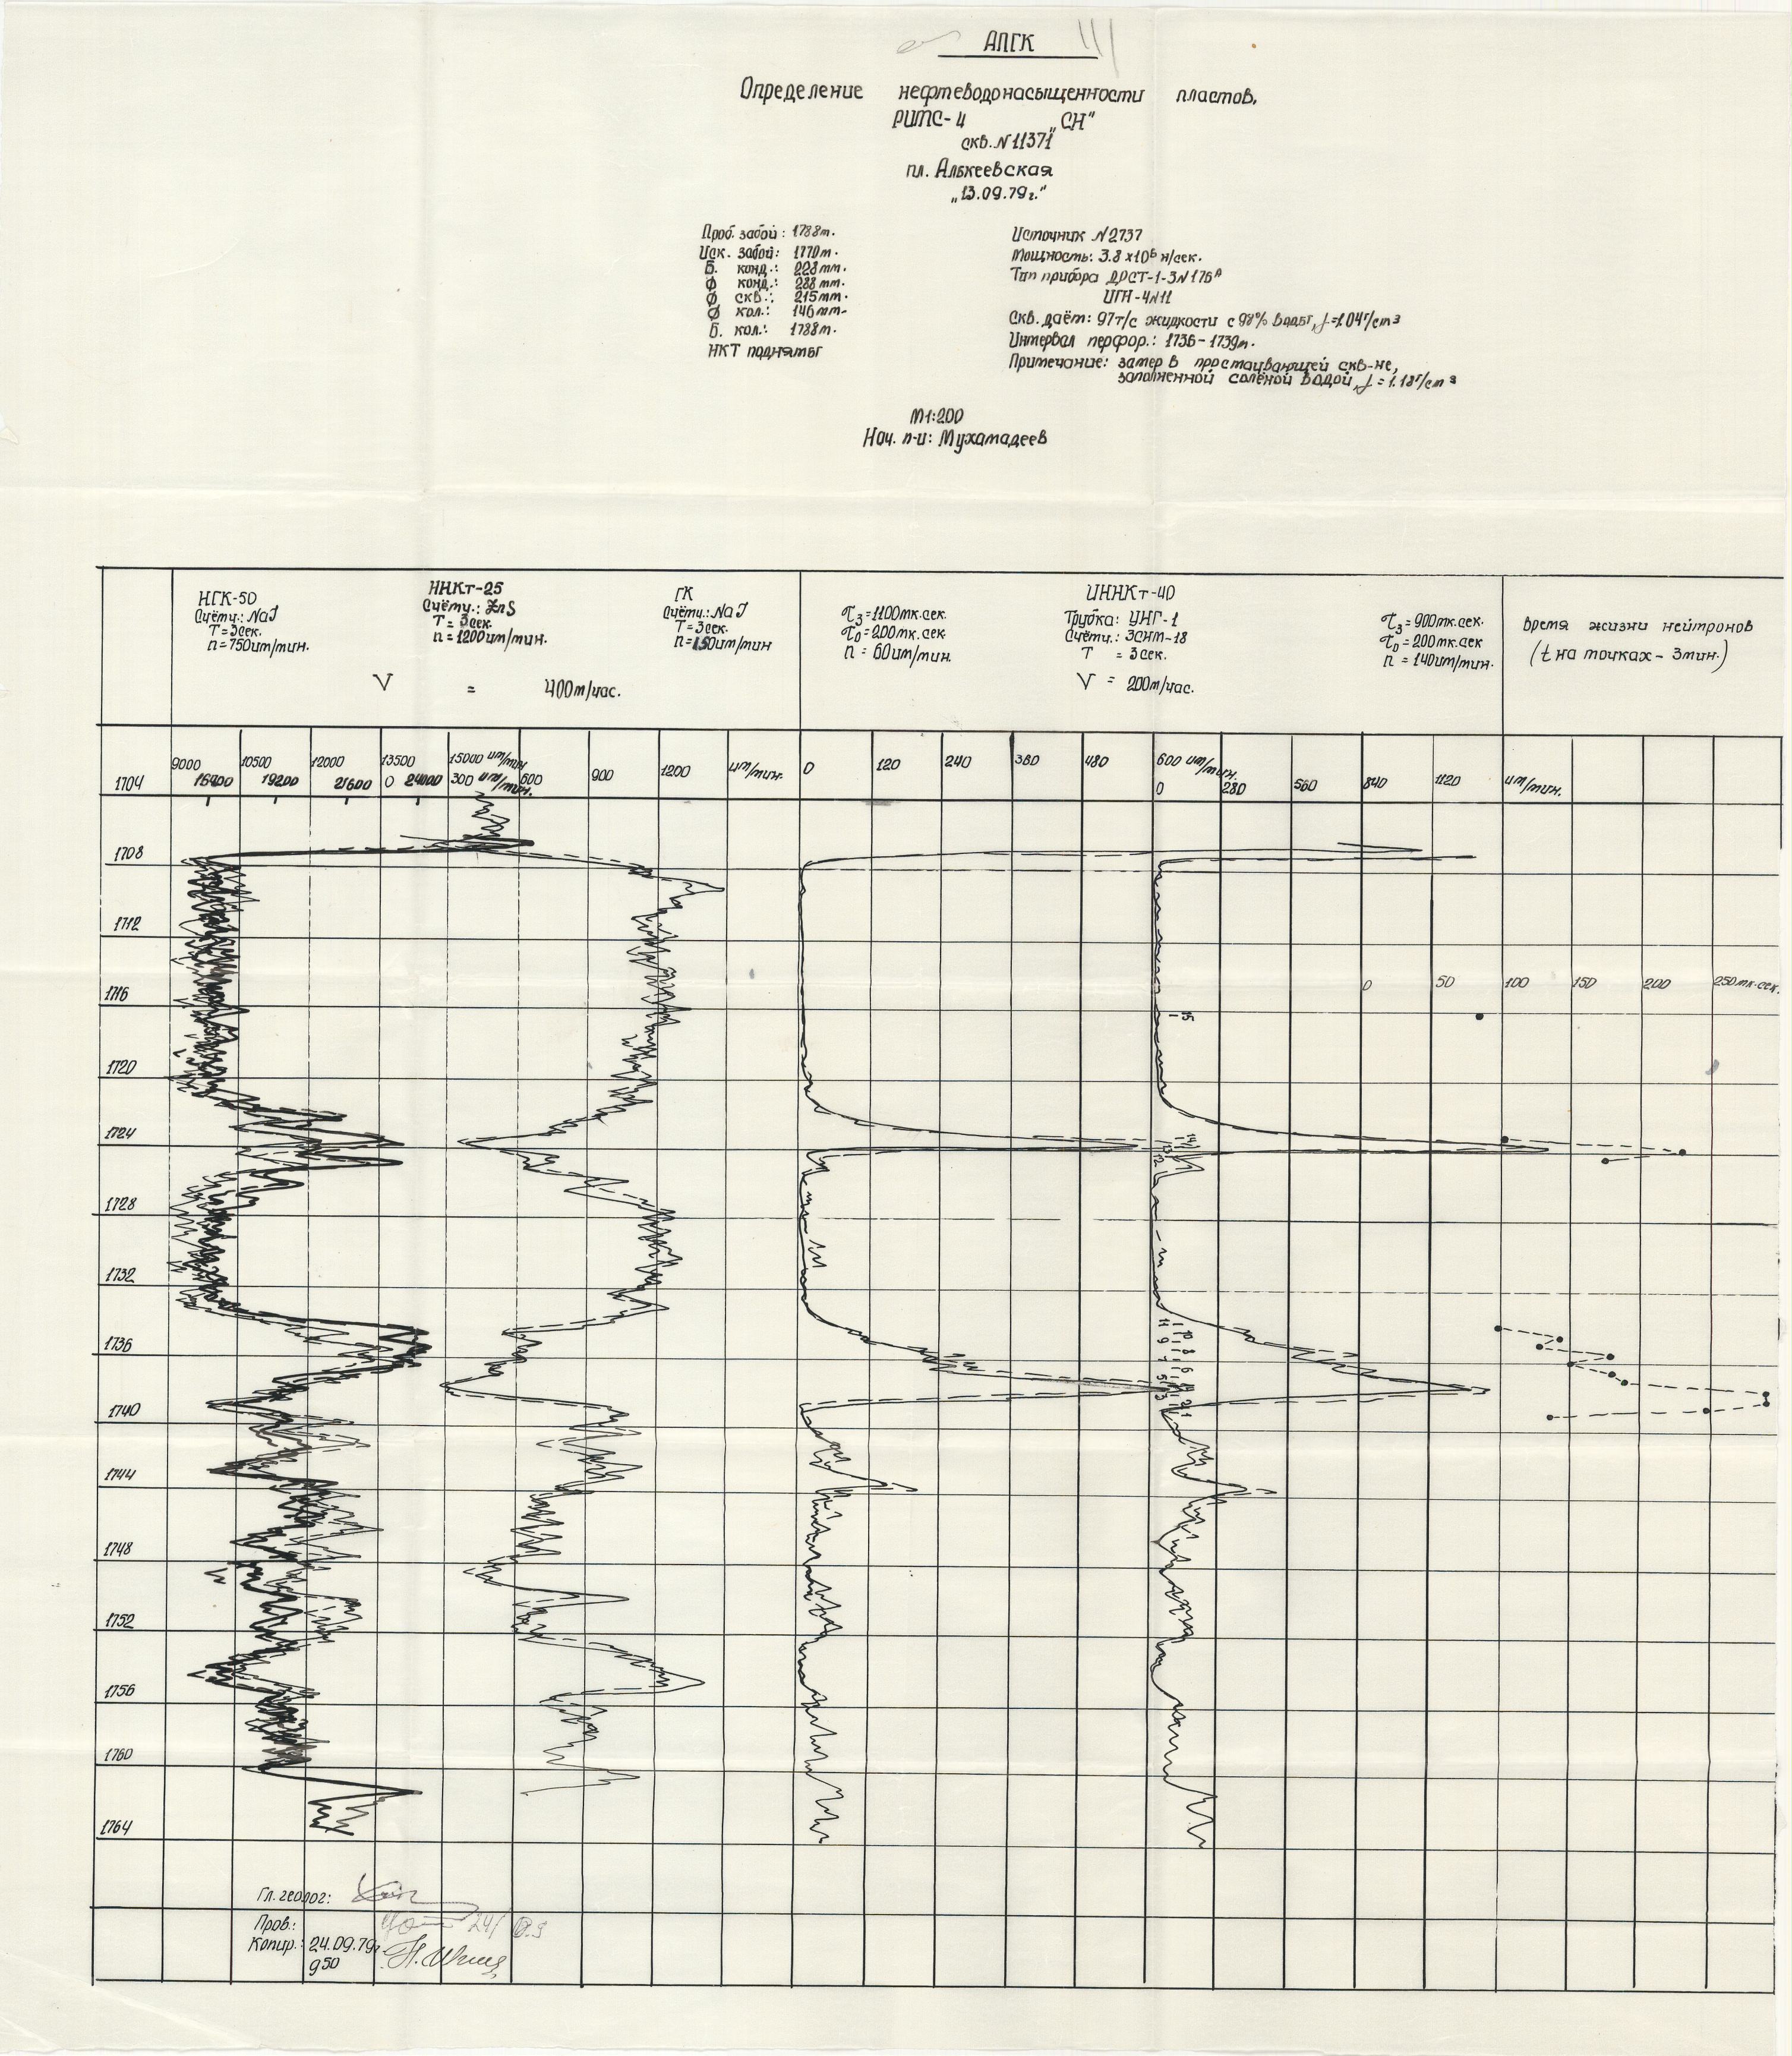 АПГК
Определение нефтеводонасыщенности пластов.
РИТС-4 „СН"
скв. N 11371
пл. Алькеевская
„13.09.79г."
Проб. забой: 1788м.
Иск. забой: 1770м.
Б. конд.: 228мм.
Ø конд.: 288мм.
Ø скв.: 215мм.
Ø кол.: 146мм.
Б. кол.: 1788м.
НКТ подняты
Источник N2737
Мощность: 3.8 х10⁶ н/сек.
Тип прибора ДРСТ-1-3N176ᴬ
ИГН-4N11
Скв. даёт: 97т/с жидкости с 98% воды, γ=1.04г/cm³
Интервал перфор.: 1736-1739м.
Примечание: замер в простаивающей скв-не,
заполненной солёной водой, γ=1.18г/cm³
М1:200
Нач. п-и: Мухамадеев
НГК-50
Счётч.: NaJ
T=3сек.
n=750им/мин.
ННКт-25
Счётч.: ZnS
T=3сек.
n=1200им/мин.
ГК
Счётч.: NaJ
T=3сек.
n=150им/мин
V = 400м/час.
τ₃=1100мк.сек.
τ₀=200мк.сек.
n = 60им/мин.
ИННКт-40
Трубка: УНГ-1
Счётч.: ЗСНМ-18
T = 3сек.
V = 200м/час.
τ₃=900мк.сек.
τ₀=200мк.сек
n = 140им/мин.
время жизни нейтронов
(t на точках - 3мин.)
9000 10500 12000 13500 15000 им/мин 600 900 1200 им/мин.
16800 19200 21600 0 24000 300 им/мин.
0 120 240 360 480 600 им/мин.
0 280 560 840 1120 им/мин.
1704
1708
1712
1716
0 50 100 150 200 250мк.сек.
15
1720
1724
14
13
12
1728
1732
11 10
9 8
1736
7 6
5 4
3 2 1
1740
1744
1748
1752
1756
1760
1764
Гл. геолог:
Пров.: 24/
Копир.: 24.09.79г.
9⁵⁰